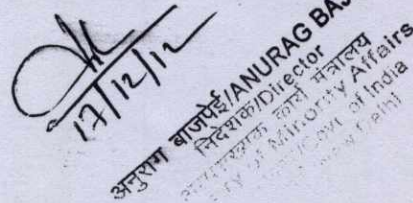 17/12/12
अनुराग बाजपेई/ANURAG BAJ
निदेशक/Director
अल्पसंख्यक कार्य मंत्रालय
of Minority Affairs
Govt. of India
New Delhi